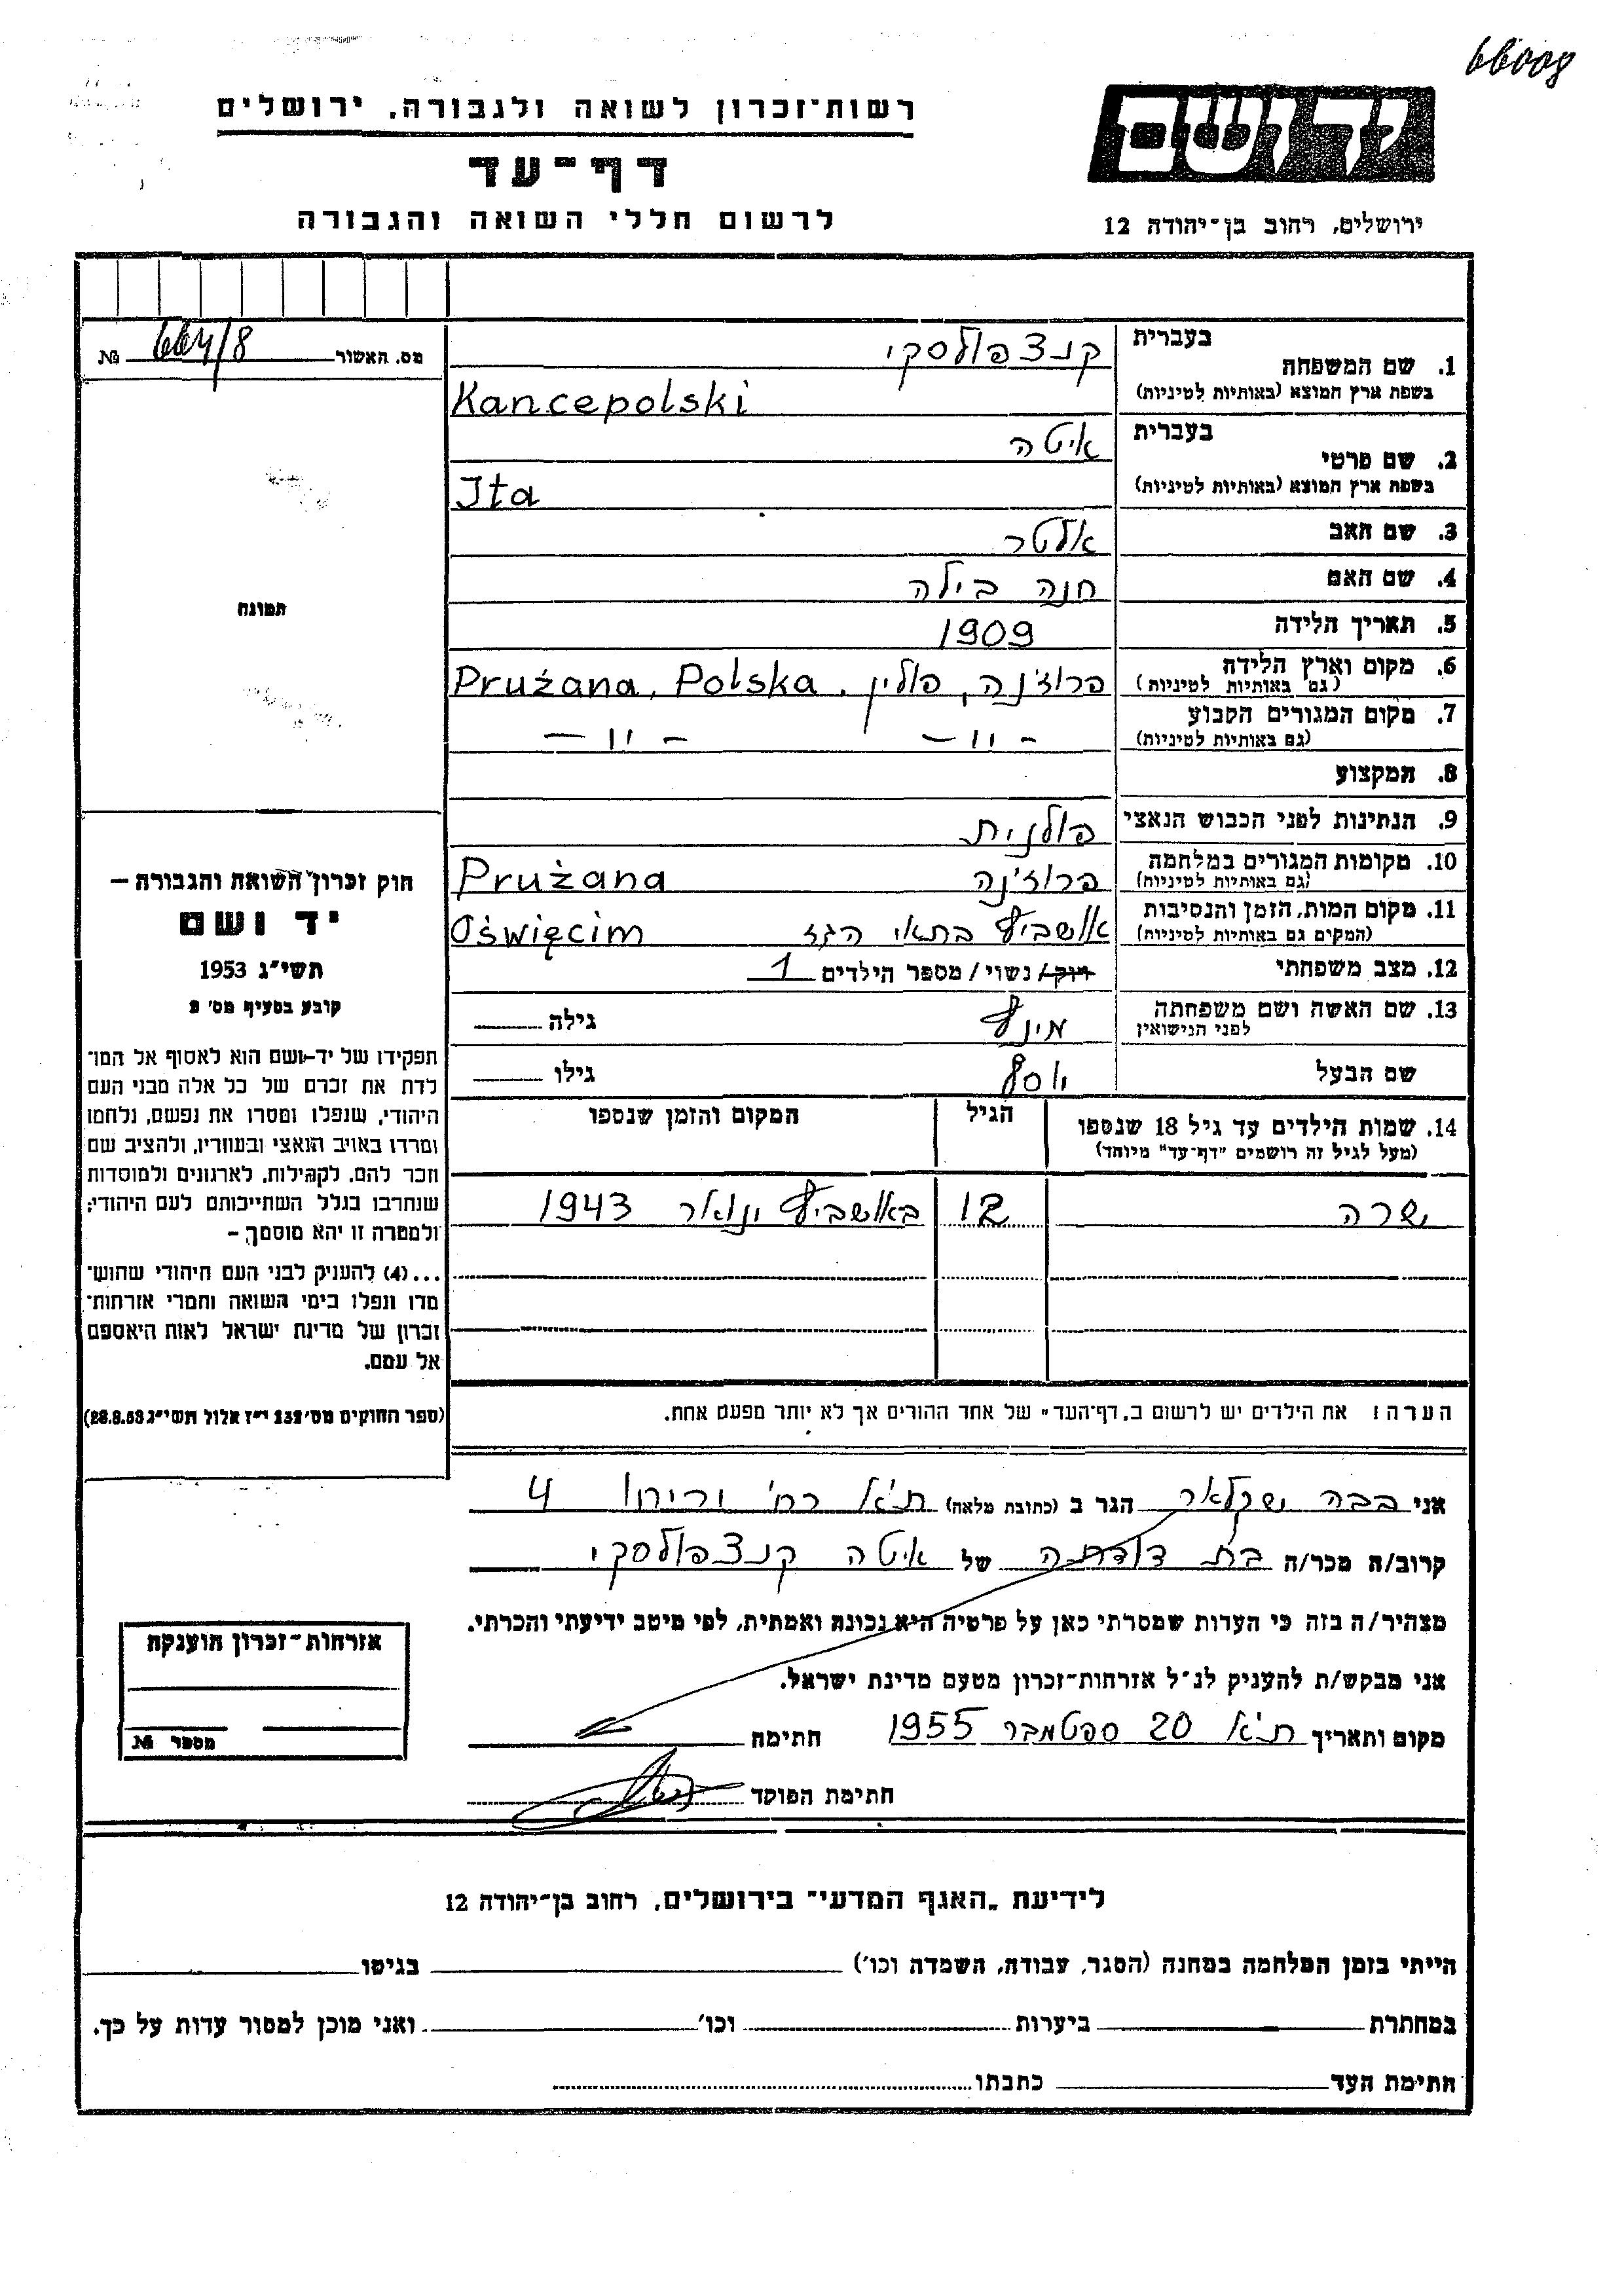 66008
יד ושם
ירושלים, רחוב בן־יהודה 12
רשות־זכרון לשואה ולגבורה, ירושלים
דף־עד
לרשום חללי השואה והגבורה
מס. האשור 664/8 №
תמונה
חוק זכרון השואה והגבורה —
יד ושם
תשי״ג 1953
קובע בסעיף מס׳ 2
תפקידו של יד-ושם הוא לאסוף אל המו־
לדת את זכרם של כל אלה מבני העם
היהודי, שנפלו ומסרו את נפשם, נלחמו
ומרדו באויב הנאצי ובעוזריו, ולהציב שם
וזכר להם, לקהילות, לארגונים ולמוסדות
שנחרבו בגלל השתייכותם לעם היהודי;
ולמטרה זו יהא מוסמך, –
...(4) להעניק לבני העם היהודי שהוש־
מדו ונפלו בימי השואה והמרי אזרחות־
זכרון של מדינת ישראל לאות היאספם
אל עמם.
(ספר החוקים מס׳ 132 י״ז אלול תשי״ג 28.8.53)
1. שם המשפחה בעברית קנצפולסקי
בשפת ארץ המוצא (באותיות לטיניות) Kancepolski
2. שם פרטי בעברית איטה
בשפת ארץ המוצא (באותיות לטיניות) Ita
3. שם האב אלטר
4. שם האם חנה בילה
5. תאריך הלידה 1909
6. מקום וארץ הלידה פרוז'נה, פולין. Prużana, Polska
(גם באותיות לטיניות)
7. מקום המגורים הקבוע – " – – " –
(גם באותיות לטיניות)
8. המקצוע
9. הנתינות לפני הכבוש הנאצי פולנית
10. מקומות המגורים במלחמה פרוז'נה Prużana
(גם באותיות לטיניות)
11. מקום המות, הזמן והנסיבות אושביץ בתאי הגז Oświęcim
(המקים גם באותיות לטיניות)
12. מצב משפחתי רוק/ נשוי/ מספר הילדים 1
13. שם האשה ושם משפחתה מינץ גילה
לפני הנישואין
שם הבעל יוסף גילו
14. שמות הילדים עד גיל 18 שנספו הגיל המקום והזמן שנספו
(מעל לגיל זה רושמים "דף־עד" מיוחד)
שרה 12 באושביץ ינואר 1943
הערה: את הילדים יש לרשום ב„דף־העד" של אחד ההורים אך לא יותר מפעם אחת.
אני בבה הגר ב (כתובת מלאה) ת"א רח' 4
קרוב/ה מכר/ה בת דודתה של איטה קנצפולסקי
מצהיר/ה בזה כי העדות שמסרתי כאן על פרטיה היא נכונה ואמתית, לפי מיטב ידיעתי והכרתי.
אני מבקש/ת להעניק לנ״ל אזרחות־זכרון מטעם מדינת ישראל.
מקום ותאריך ת"א 20 ספטמבר 1955 חתימה
חתימת הפוקד
אזרחות־זכרון הוענקה
מספר №
לידיעת „האגף המדעי" בירושלים, רחוב בן־יהודה 12
הייתי בזמן המלחמה במחנה (הסגר, עבודה, השמדה וכו׳) בגיטו
במחתרת ביערות וכו׳ ואני מוכן למסור עדות על כך.
חתימת העד כתבתו